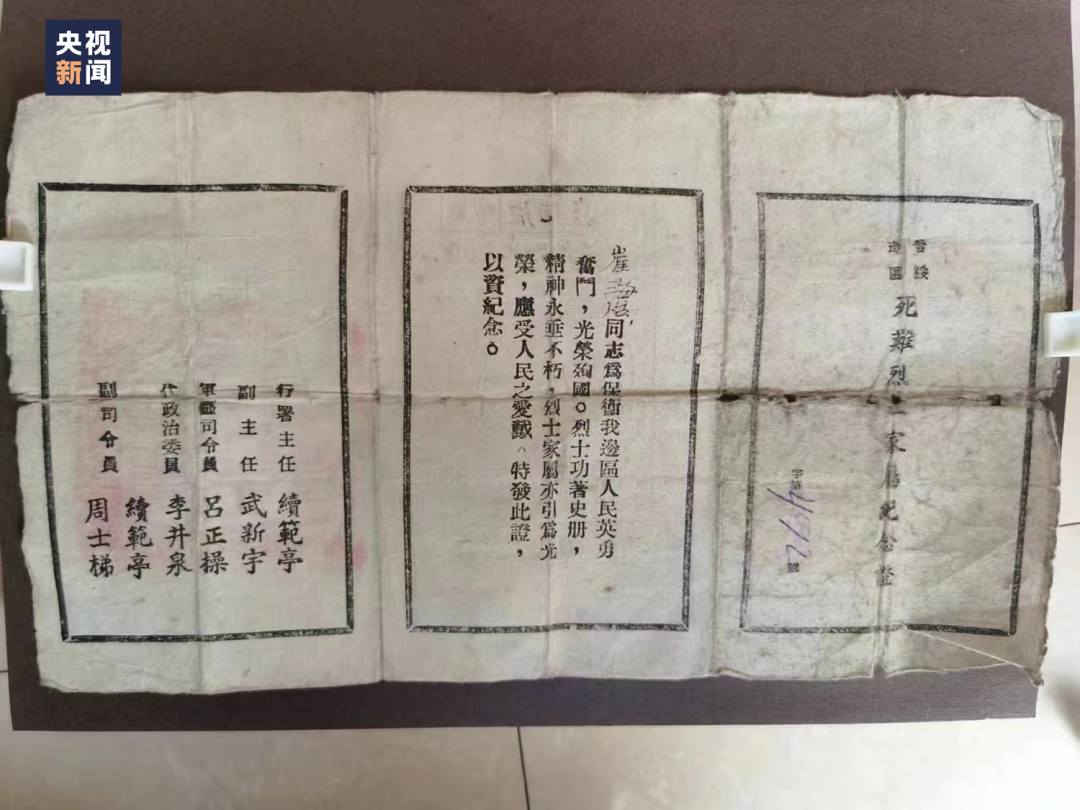 央视
新闻
晉綏
邊區
死難烈士家屬紀念證
字第 號
崔海 同志爲保衛我邊區人民英勇
奮鬥，光榮殉國。烈士功著史册，
精神永垂不朽，烈士家屬亦引爲光
榮，應受人民之愛戴。特發此證，
以資紀念。
行署主任 續範亭
副主任 武新宇
軍區司令員 呂正操
代政治委員 李井泉
副司令員 續範亭
周士梯